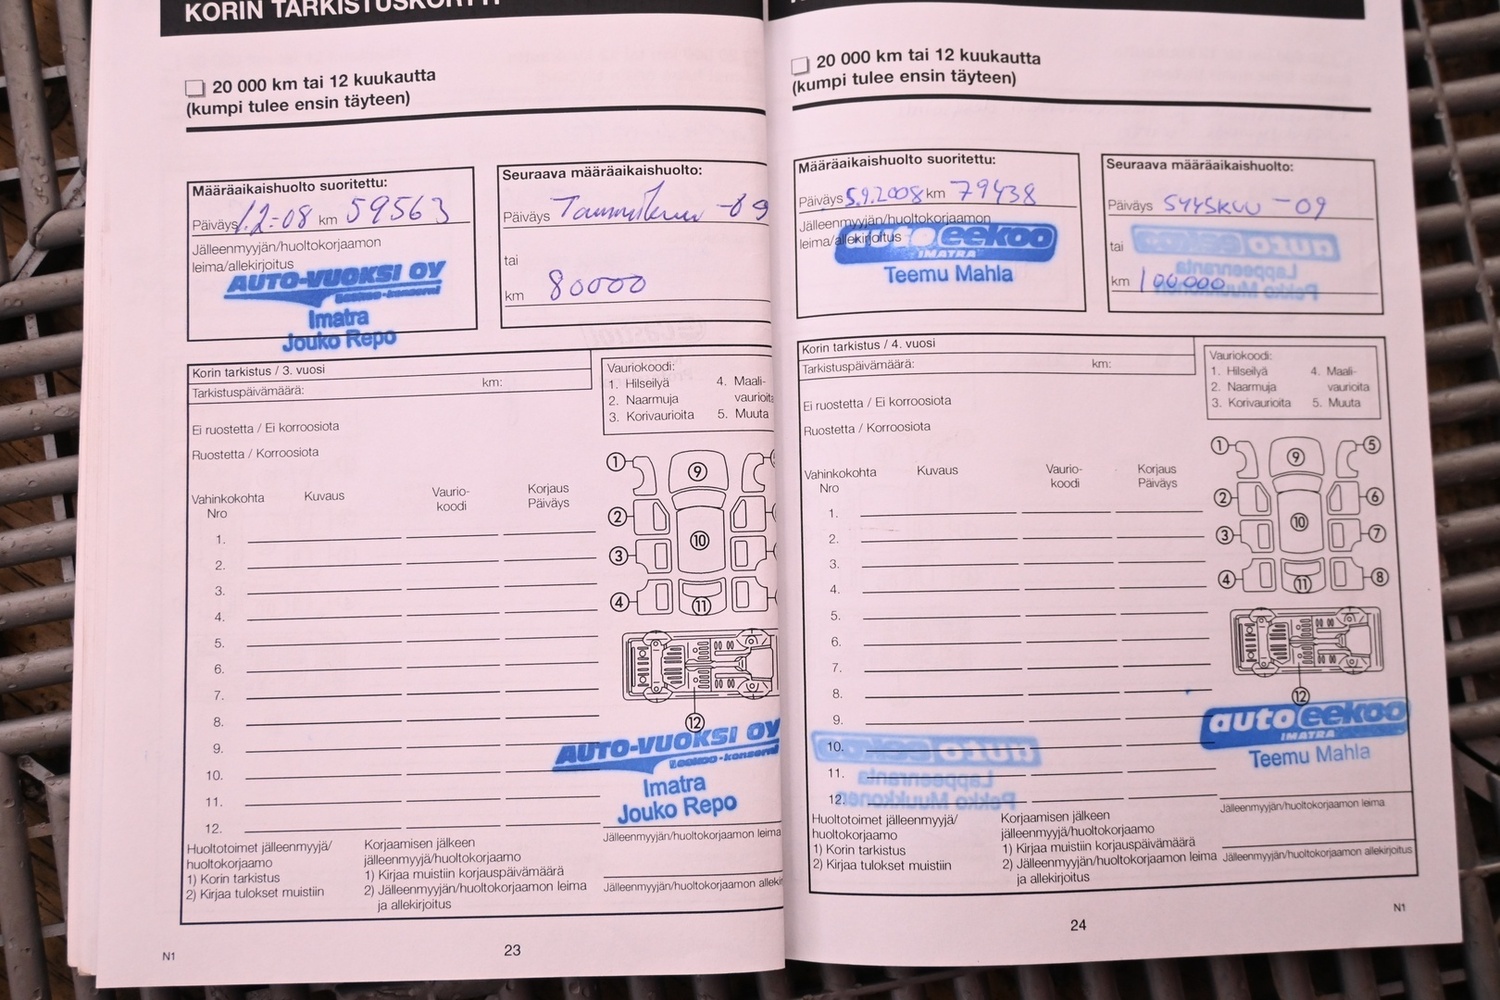 KORIN TARKISTUSKORTTI
20 000 km tai 12 kuukautta
(kumpi tulee ensin täyteen)
Määräaikaishuolto suoritettu:
Päiväys 1.2-08 km 59563
Jälleenmyyjän/huoltokorjaamon
leima/allekirjoitus
AUTO-VUOKSI OY
Eeekoo-konserni
Imatra
Jouko Repo
Seuraava määräaikaishuolto:
Päiväys Tammikuu -09
tai
km 80000
Korin tarkistus / 3. vuosi
Tarkistuspäivämäärä: km:
Ei ruostetta / Ei korroosiota
Ruostetta / Korroosiota
Vauriokoodi:
1. Hilseilyä 4. Maali-
2. Naarmuja vaurioita
3. Korivaurioita 5. Muuta
Vahinkokohta Kuvaus Vaurio- Korjaus
Nro koodi Päiväys
1.
2.
3.
4.
5.
6.
7.
8.
9.
10.
11.
12.
1
2
3
4
9
10
11
12
AUTO-VUOKSI OY
Eeekoo-konserni
Imatra
Jouko Repo
Jälleenmyyjän/huoltokorjaamon leima
Jälleenmyyjän/huoltokorjaamon allekir
Huoltotoimet jälleenmyyjä/
huoltokorjaamo
1) Korin tarkistus
2) Kirjaa tulokset muistiin
Korjaamisen jälkeen
jälleenmyyjä/huoltokorjaamo
1) Kirjaa muistiin korjauspäivämäärä
2) Jälleenmyyjän/huoltokorjaamon leima
ja allekirjoitus
N1
23
20 000 km tai 12 kuukautta
(kumpi tulee ensin täyteen)
Määräaikaishuolto suoritettu:
Päiväys 5.9.2008 km 79438
Jälleenmyyjän/huoltokorjaamon
leima/allekirjoitus
auto eekoo
IMATRA
Teemu Mahla
Seuraava määräaikaishuolto:
Päiväys SYYSKUU -09
tai
km 100.000
auto eekoo
Lappeenranta
Pekko Muukkonen
Korin tarkistus / 4. vuosi
Tarkistuspäivämäärä: km:
Ei ruostetta / Ei korroosiota
Ruostetta / Korroosiota
Vauriokoodi:
1. Hilseilyä 4. Maali-
2. Naarmuja vaurioita
3. Korivaurioita 5. Muuta
Vahinkokohta Kuvaus Vaurio- Korjaus
Nro koodi Päiväys
1.
2.
3.
4.
5.
6.
7.
8.
9.
10.
11.
12.
1
2
3
4
5
6
7
8
9
10
11
12
auto eekoo
IMATRA
Teemu Mahla
auto eekoo
Lappeenranta
Pekko Muukkonen
Jälleenmyyjän/huoltokorjaamon leima
Jälleenmyyjän/huoltokorjaamon allekirjoitus
Huoltotoimet jälleenmyyjä/
huoltokorjaamo
1) Korin tarkistus
2) Kirjaa tulokset muistiin
Korjaamisen jälkeen
jälleenmyyjä/huoltokorjaamo
1) Kirjaa muistiin korjauspäivämäärä
2) Jälleenmyyjän/huoltokorjaamon leima
ja allekirjoitus
24
N1